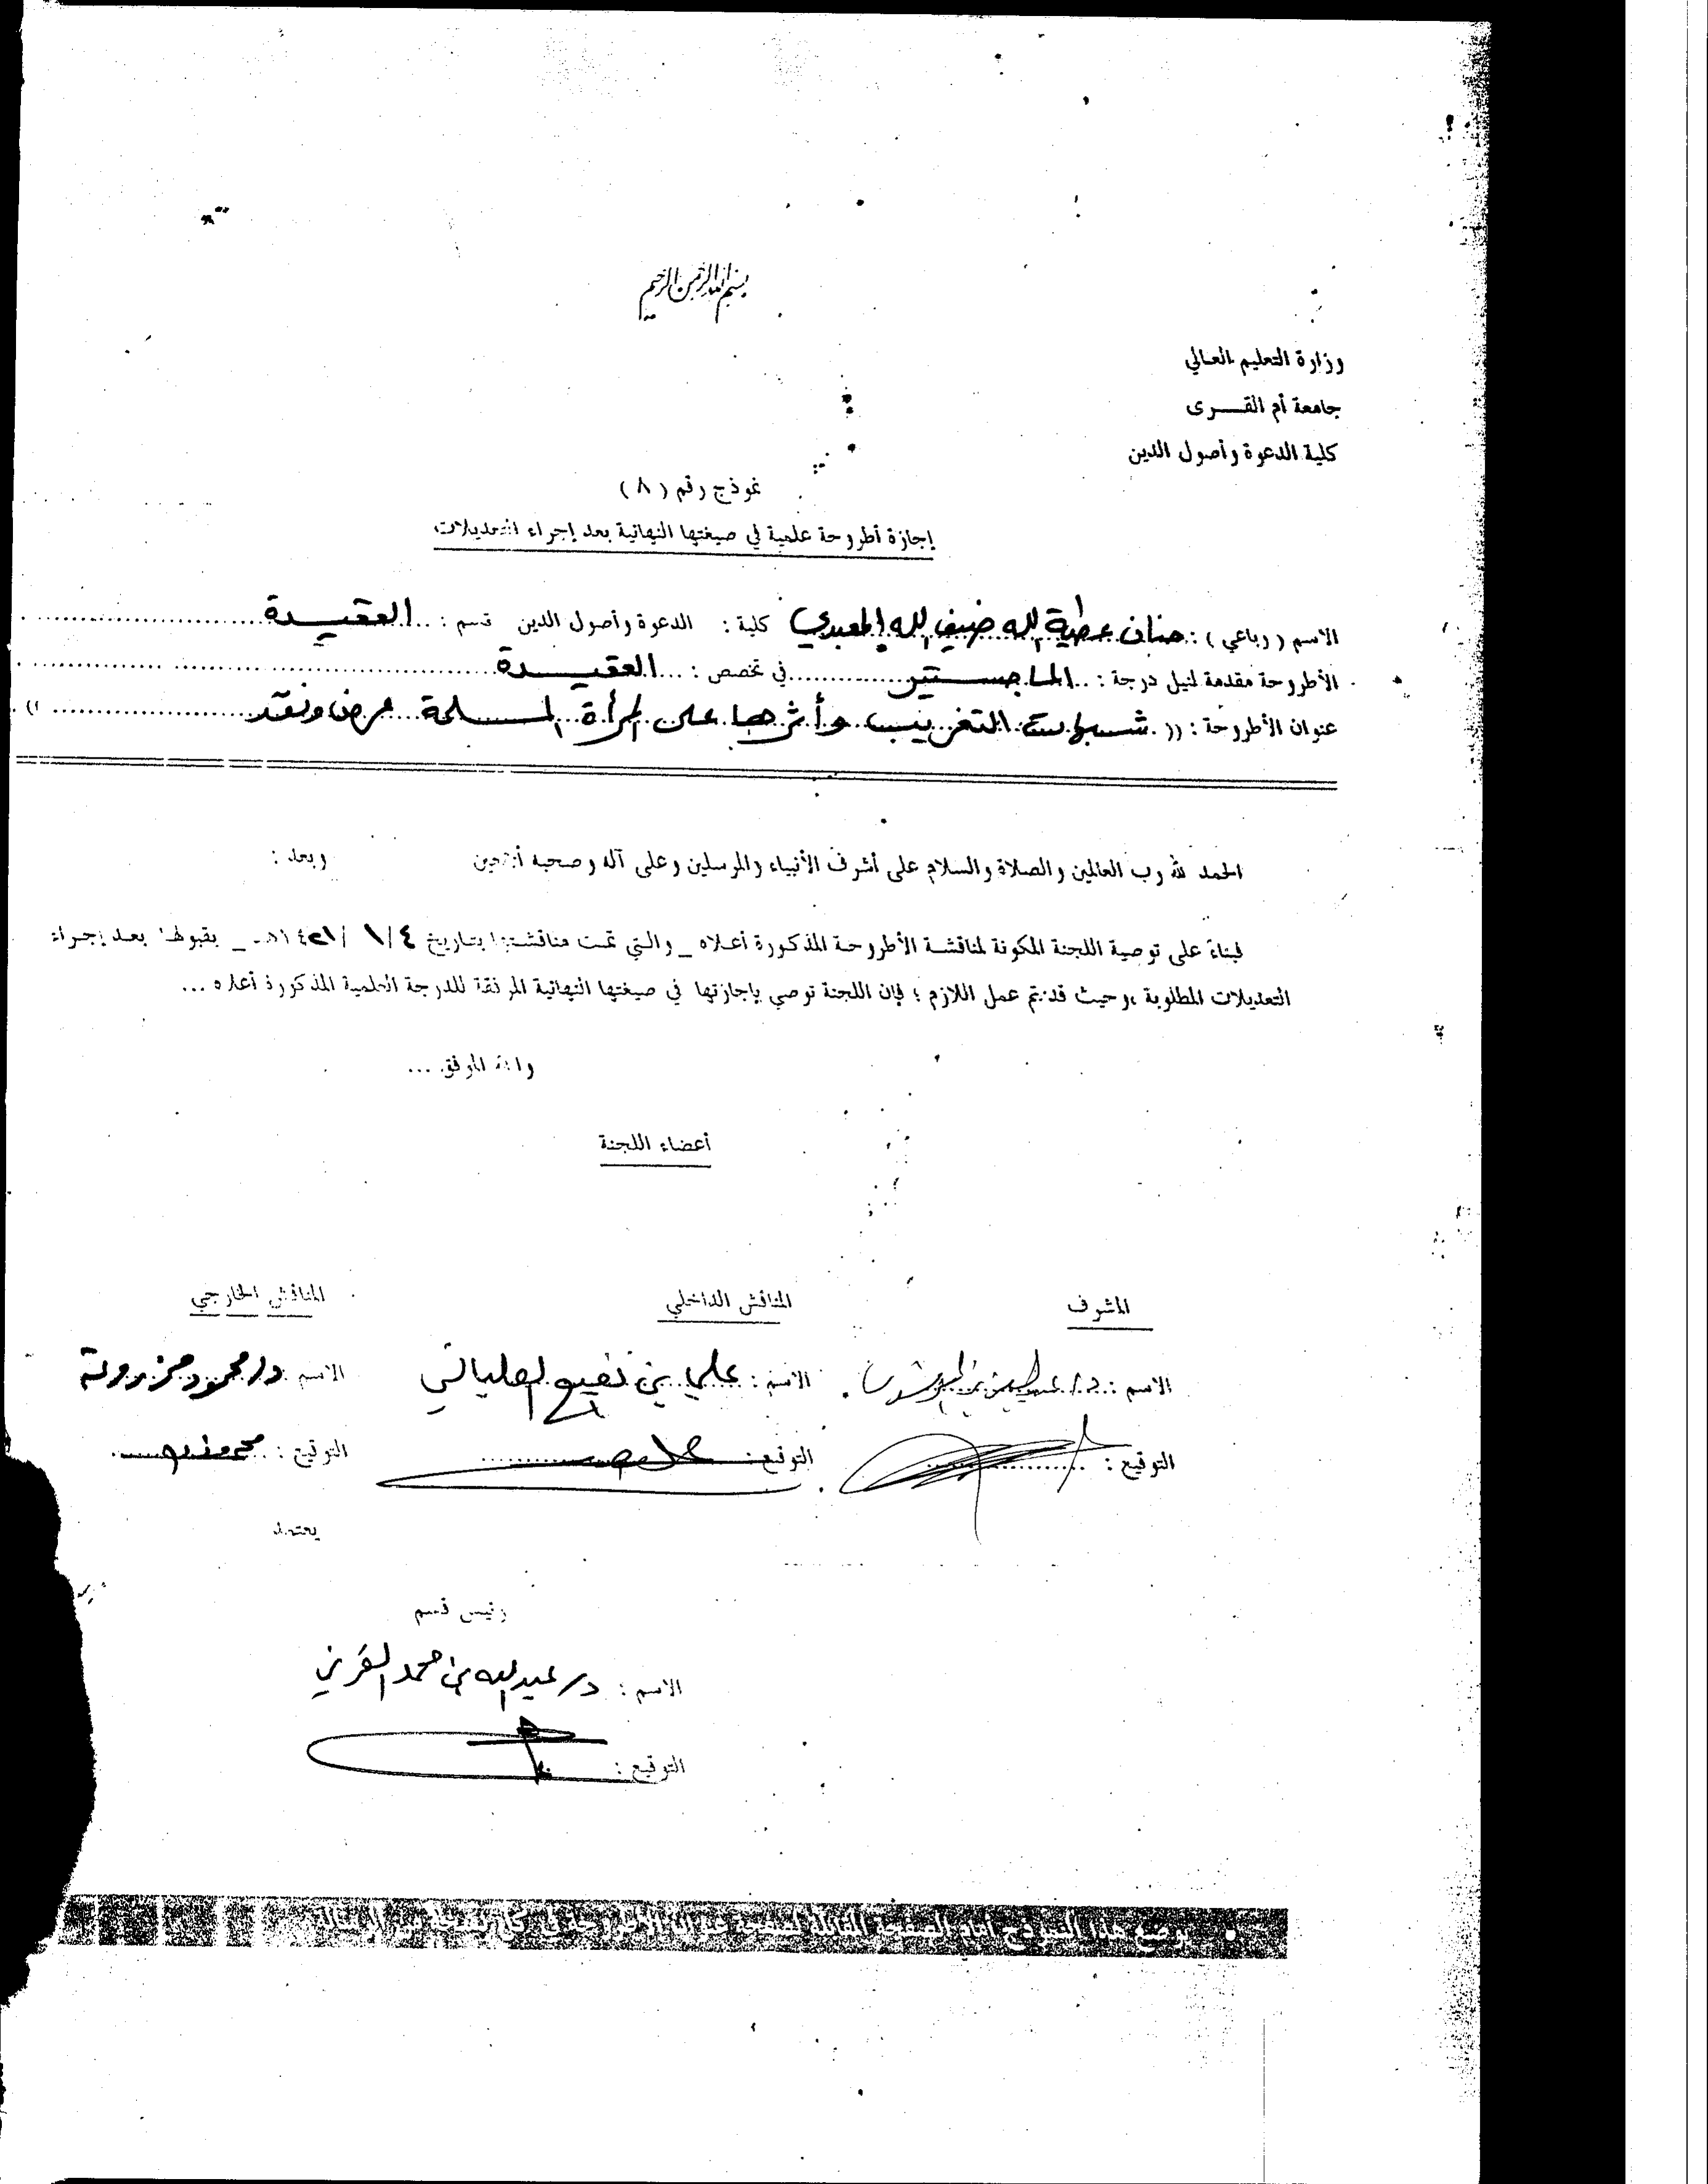 بسم الله الرحمن الرحيم
وزارة التعليم العالي
جامعة أم القـــرى
كلية الدعوة وأصول الدين
نموذج رقم ( ٨ )
إجازة أطروحة علمية في صيغتها النهائية بعد إجراء التعديلات
الاسم ( رباعي ) : حنان عطية الله ضيف الله المعبدي كلية : الدعوة وأصول الدين قسم : العقيدة
الأطروحة مقدمة لنيل درجة : الماجستير في تخصص : العقيدة
عنوان الأطروحة : (( شبهات التغريب وأثرها على المرأة المسلمة عرض ونقد ))
الحمد لله رب العالمين والصلاة والسلام على أشرف الأنبياء والمرسلين وعلى آله وصحبه أجمعين وبعد :
فبناءً على توصية اللجنة المكونة لمناقشة الأطروحة المذكورة أعلاه _ والتي تمت مناقشتها بتاريخ ٤ / ١ / ١٤٢١هـ _ بقبولها بعد إجراء
التعديلات المطلوبة ، وحيث قد تم عمل اللازم ؛ فإن اللجنة توصي بإجازتها في صيغتها النهائية المرفقة للدرجة العلمية المذكورة أعلاه ...
والله الموفق ...
أعضاء اللجنة
المشرف المناقش الداخلي المناقش الخارجي
الاسم : د/ الاسم : علي بن نفيع العلياني الاسم : د/ محمود مزروعة
التوقيع : التوقيع : التوقيع :
يعتمد
رئيس قسم
الاسم : د/ عبد الله بن محمد القرني
التوقيع :
• يوضع هذا النموذج أمام الصفحة المقابلة لصفحة عنوان الأطروحة في كل نسخة من الرسالة